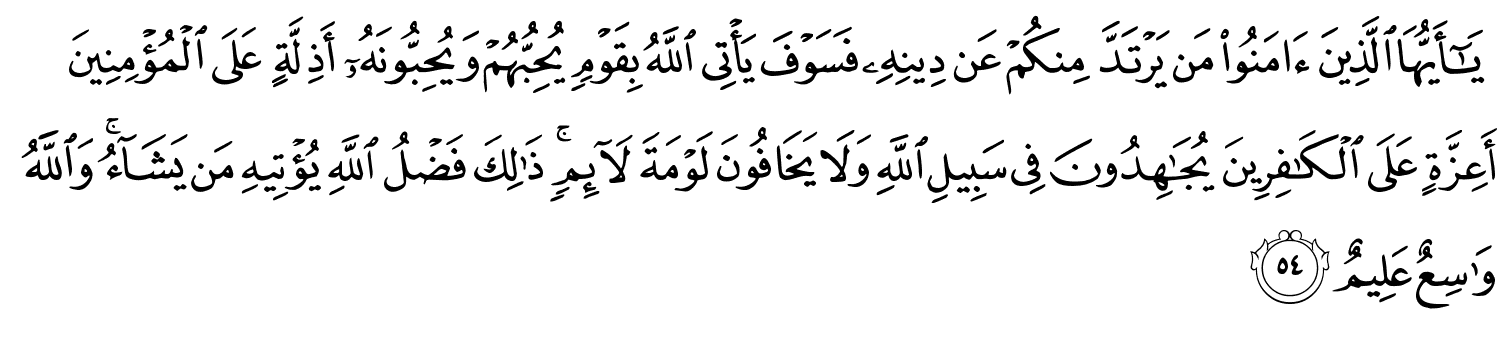 يَـٰٓأَيُّهَا ٱلَّذِينَ ءَامَنُوا۟ مَن يَرْتَدَّ مِنكُمْ عَن دِينِهِۦ فَسَوْفَ يَأْتِى ٱللَّهُ بِقَوْمٍ يُحِبُّهُمْ وَيُحِبُّونَهُۥٓ أَذِلَّةٍ عَلَى ٱلْمُؤْمِنِينَ
أَعِزَّةٍ عَلَى ٱلْكَـٰفِرِينَ يُجَـٰهِدُونَ فِى سَبِيلِ ٱللَّهِ وَلَا يَخَافُونَ لَوْمَةَ لَآئِمٍ ۚ ذَٰلِكَ فَضْلُ ٱللَّهِ يُؤْتِيهِ مَن يَشَآءُ ۚ وَٱللَّهُ
وَٰسِعٌ عَلِيمٌ ٥٤